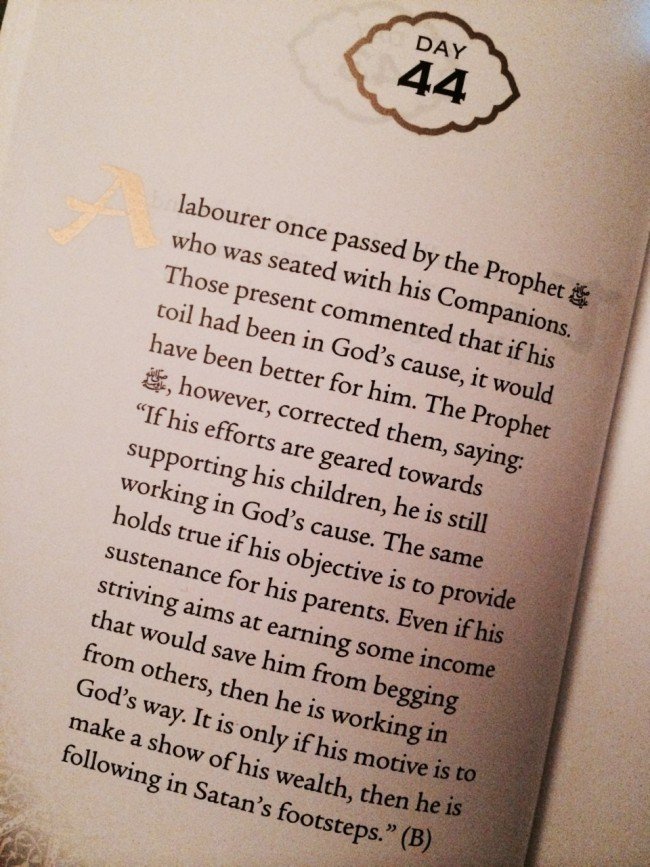 DAY
44
A labourer once passed by the Prophet ﷺ
who was seated with his Companions.
Those present commented that if his
toil had been in God's cause, it would
have been better for him. The Prophet
ﷺ, however, corrected them, saying:
“If his efforts are geared towards
supporting his children, he is still
working in God's cause. The same
holds true if his objective is to provide
sustenance for his parents. Even if his
striving aims at earning some income
that would save him from begging
from others, then he is working in
God's way. It is only if his motive is to
make a show of his wealth, then he is
following in Satan's footsteps.” (B)